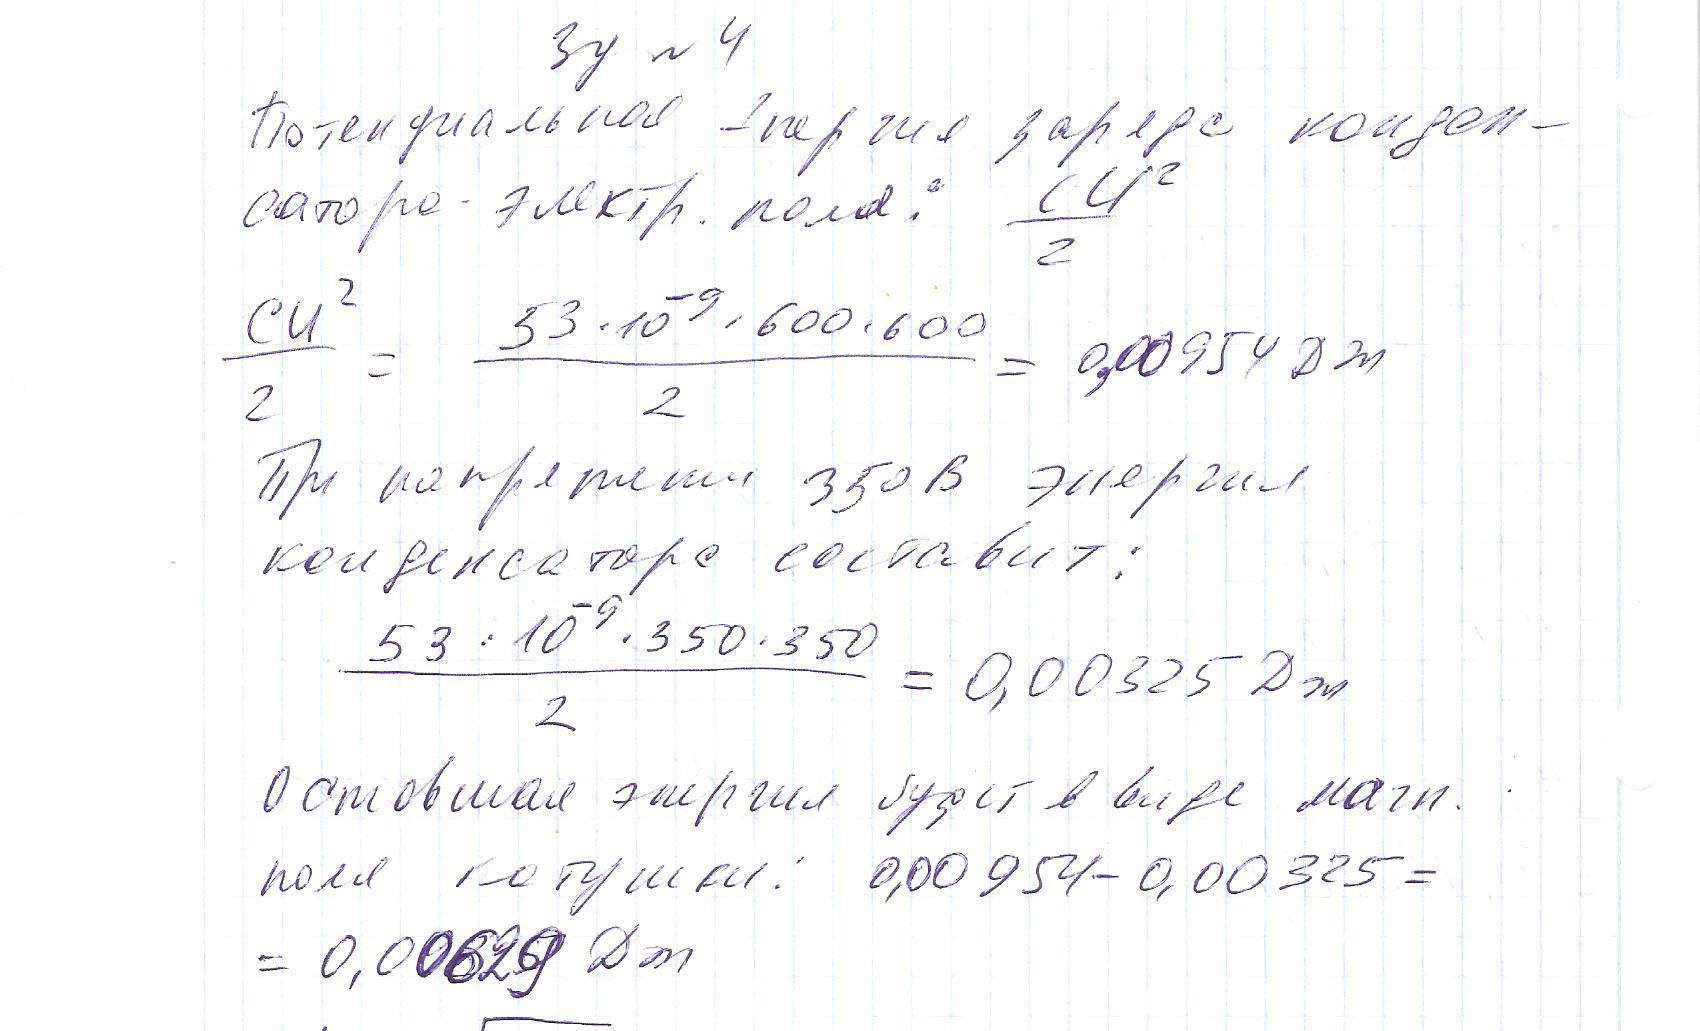 Зу ~ 4
Потенциальная энергия заряда конден-
сатора - электр. поля: CU²/2
CU²/2 = 53·10⁻⁹·600·600/2 = 0,00954 Дж
При напряжении 350 В энергия
конденсатора составит:
53·10⁻⁹·350·350/2 = 0,00325 Дж
Оставшая энергия будет в виде магн.
поля катушки: 0,00954 - 0,00325 =
= 0,00629 Дж